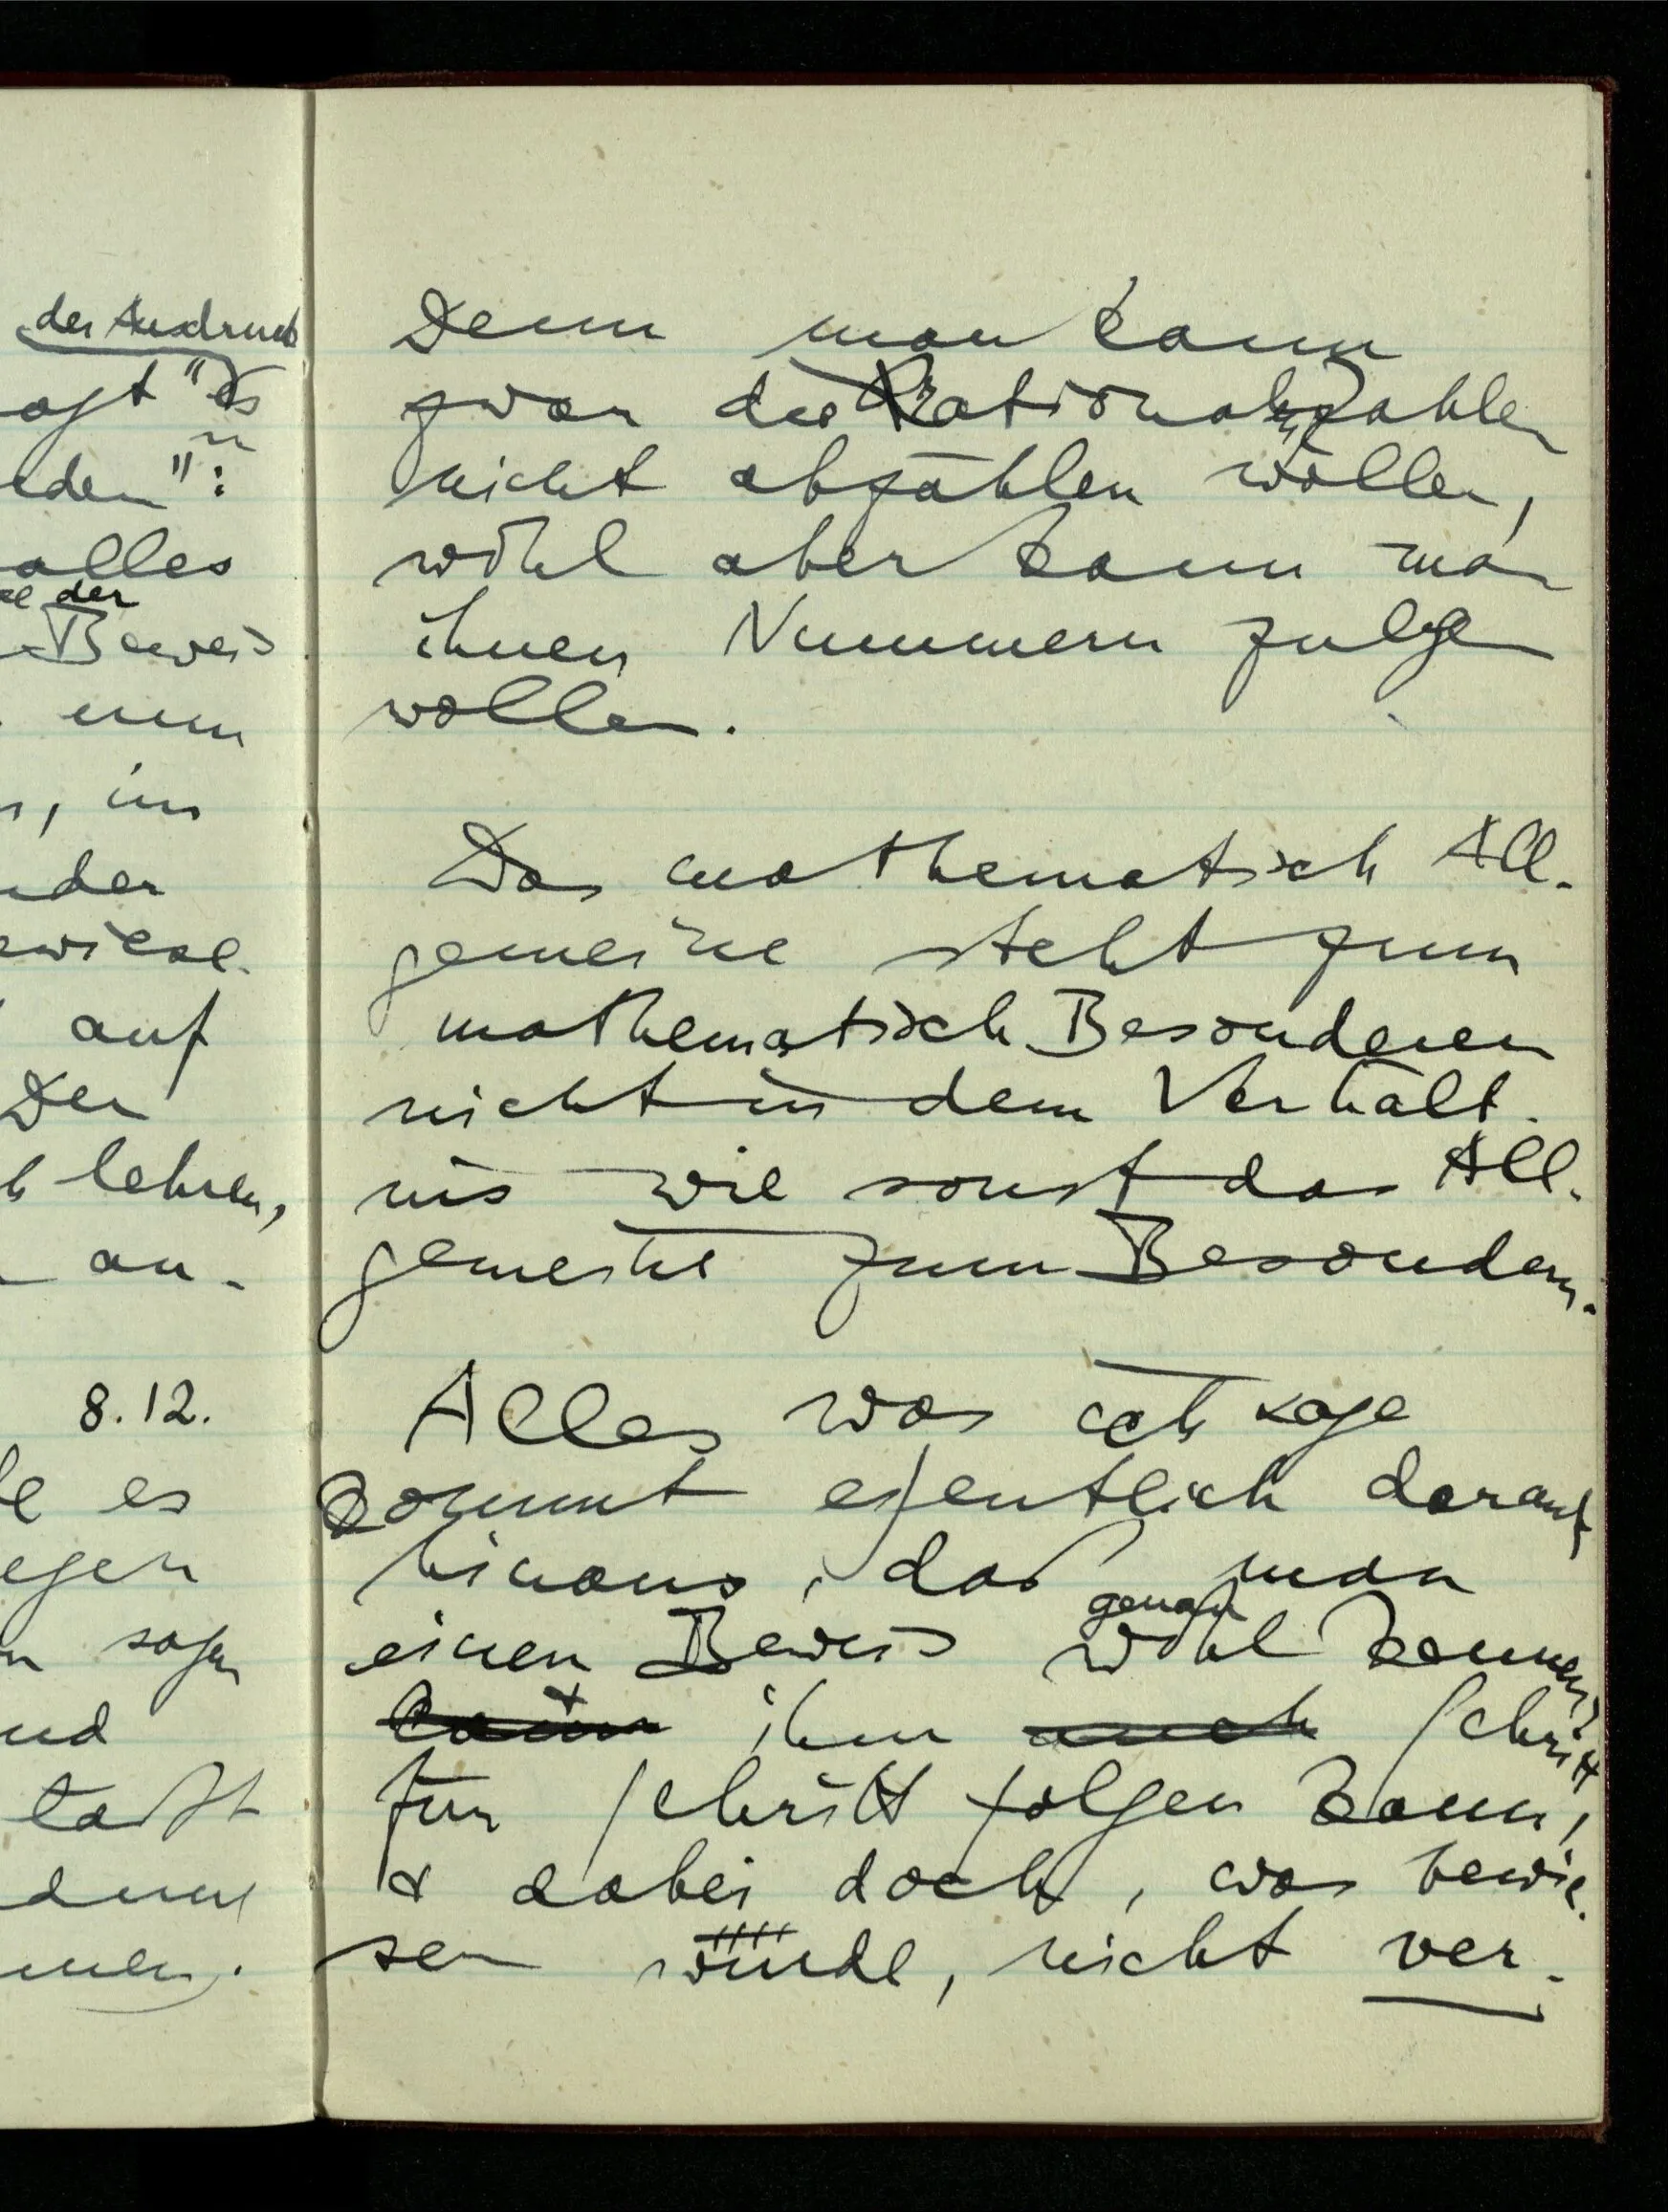 der Ausdruck
"Es
":
alles
der
Beweis
nun
, im
auf
Der
lehren,
an-
8.12.
es
sagen
Denn man kann
zwar die Rationalzahlen
nicht abzählen wollen,
wohl aber kann man
ihnen Nummern zulegen
wollen.
Das mathematisch All-
gemeine steht zum
mathematisch Besonderen
nicht in dem Verhält-
nis wie sonst das All-
gemeine zum Besondern.
Alles was ich sage
kommt eigentlich darauf
hinaus, daß man
genau
einen Beweis wohl kennen &
kann ihm auch Schritt
für Schritt folgen kann,
& dabei doch, was bewie-
sen würde, nicht ver-